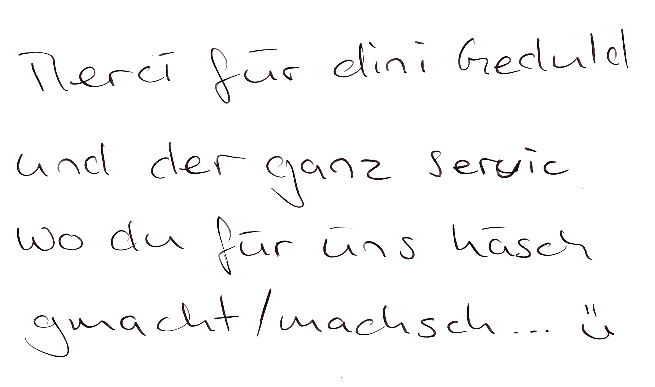 Merci für dini Geduld
und der ganz servic
wo du für üns häsch
gmacht/machsch... ü